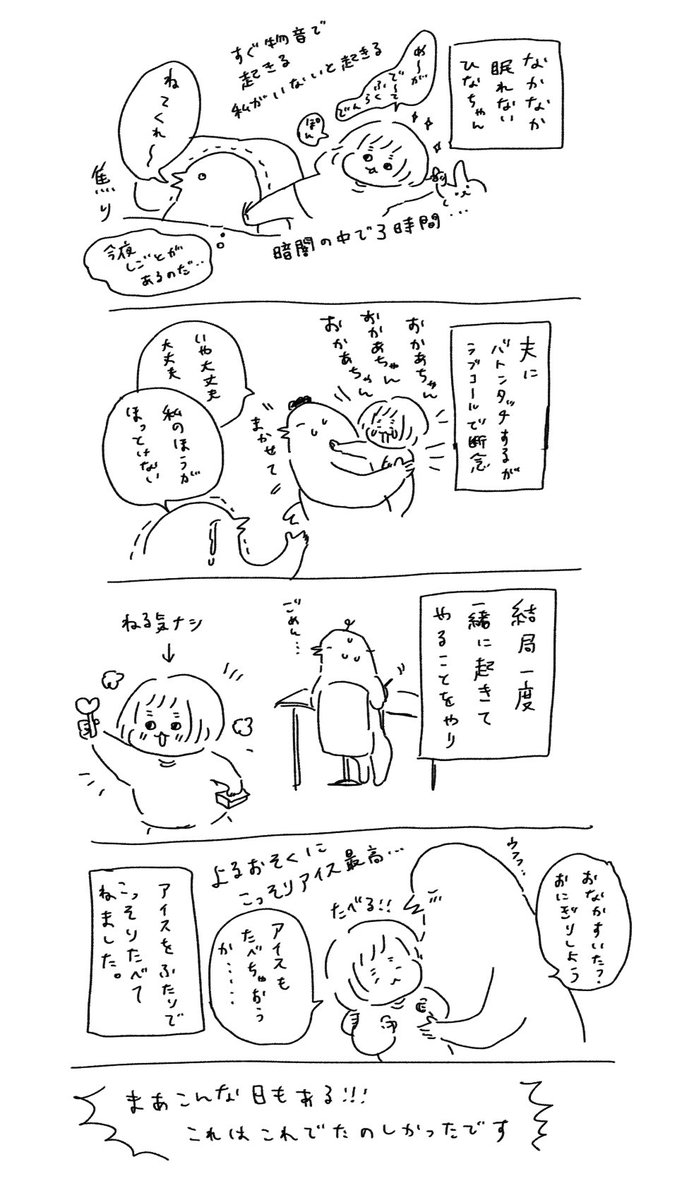 なかなか
眠れない
ひなちゃん
すぐ物音で
起きる
私がいないと起きる
め〜が
で〜て
ふくらく
でん
ぽん
ねてくれ〜
焦り
今夜
しごとが
あるのだ…
暗闇の中で3時間…
夫に
バトンタッチするが
ラブコールで断念
おかあちゃん
おかあちゃん
おかあちゃん
まかせて
いや大丈夫
大丈夫
私のほうが
ほっとけない
結局一度
一緒に起きて
やることをやり
ごめん…
ねる気ナシ
↓
おなかすいた?
おにぎりしよう
ウフフ…
よるおそくに
こっそりアイス最高…
たべる!!
アイスも
たべちゃおう
か……
アイスをふたりで
こっそりたべて
ねました。
まあこんな日もある!!!
これはこれでたのしかったです